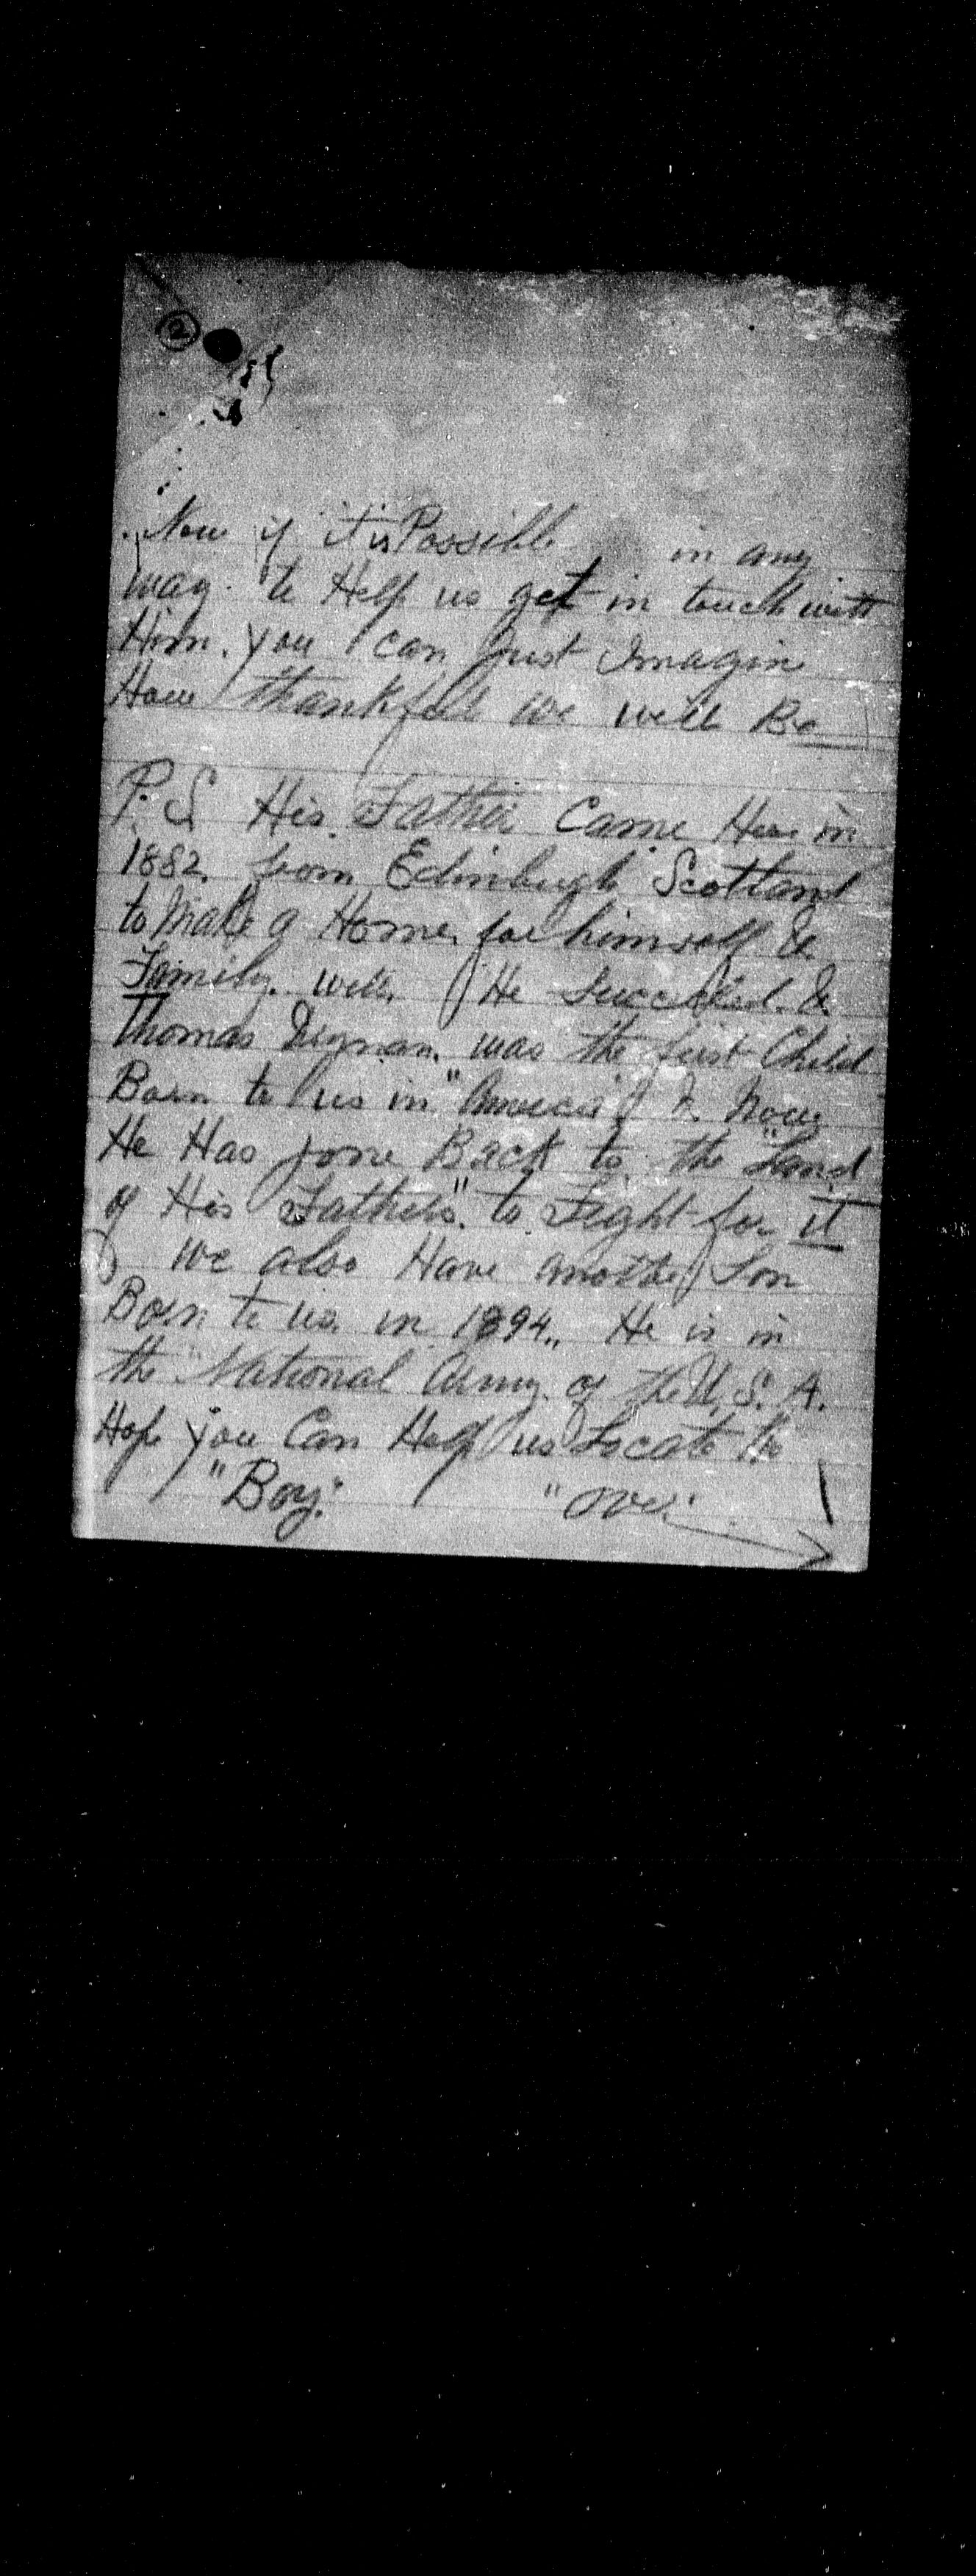 2
Now if it is Possible in any
way to Help us get in touch with
Him. you can just Imagin
How thankfull we will Be
P. S His Father Came Here in
1882. from Edinburgh Scotland
to Make a Home for himself &
Family. well. He Succeeded. &
Thomas was the first Child
Born to us in "America" & Now
He Has gone Back to the "Land
of His Fathers". to Fight for it
we also Have another Son
Born to us. in 1894,, He is in
the National Army of the U. S. A.
Hope you Can Help us Locate the
"Boy." "Over."